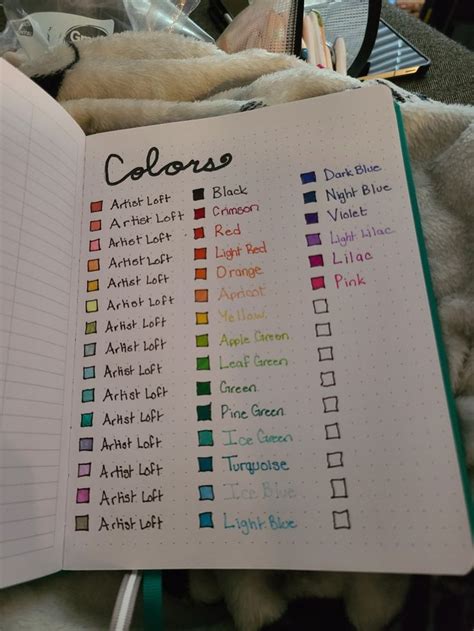 Colors
Artist Loft
Artist Loft
Artist Loft
Artist Loft
Artist Loft
Artist Loft
Artist Loft
Artist Loft
Artist Loft
Artist Loft
Artist Loft
Artist Loft
Artist Loft
Artist Loft
Artist Loft
Black
Crimson
Red
Light Red
Orange
Apricot
Yellow
Apple Green
Leaf Green
Green
Pine Green
Ice Green
Turquoise
Ice Blue
Light Blue
Dark Blue
Night Blue
Violet
Light Lilac
Lilac
Pink